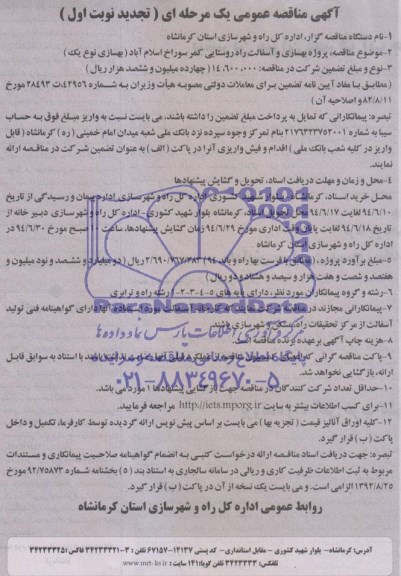 آگهی مناقصه عمومی یک مرحله ای ( تجدید نوبت اول )
۱-نام دستگاه مناقصه گزار، اداره کل راه و شهرسازی استان کرمانشاه
۲-موضوع مناقصه، پروژه بهسازی و آسفالت راه روستایی کمر سوراخ اسلام آباد ( بهسازی نوع یک )
۳-نوع و مبلغ تضمین شرکت در مناقصه: ۱۴،۶۰۰،۰۰۰ ( چهارده میلیون و ششصد هزار ریال )
( مطابق با مفاد آیین نامه تضمین برای معاملات دولتی مصوبه هیأت وزیران به شماره ۴۲۹۵۶/ت ۲۸۴۹۳ مورخ
۸۲/۸/۱۱ و اصلاحیه آن )
تبصره: پیمانکارانی که تمایل به پرداخت مبلغ تضمین را داشته باشند، می بایست نسبت به واریز مبلغ فوق به حساب
سیبا به شماره ۲۱۷۶۴۴۲۷۵۲۰۰۱ بنام تمرکز وجوه سپرده نزد بانک ملی شعبه میدان امام خمینی (ره) کرمانشاه ( قابل
واریز در کلیه شعب بانک ملی ) اقدام و فیش واریزی آنرا در پاکت ( الف ) به عنوان تضمین شرکت در مناقصه ارائه
نمایند.
۴-محل و زمان و مهلت دریافت اسناد، تحویل و گشایش پیشنهادها
محل خرید اسناد، کرمانشاه، بلوار شهید کشوری اداره کل راه و شهرسازی اداره پیمان و رسیدگی از تاریخ
۹۴/۶/۱۰ لغایت ۹۴/۶/۱۷ محل تحویل اسناد، کرمانشاه بلوار شهید کشوری-اداره کل راه و شهرسازی دبیر خانه از
تاریخ ۹۴/۶/۱۸ لغایت پایان وقت اداری مورخ ۹۴/۶/۲۹ زمان گشایش پیشنهادها، ساعت ۱۰ صبح مورخ ۹۴/۶/۳۰ در
اداره کل راه و شهرسازی استان کرمانشاه
۵-مبلغ برآورد پروژه، (مطابق با فهرست بها راه و باند ۹۴) ۲/۶۹۰/۷۶۷/۳۸۲ ریال (دو میلیارد و ششصد و نود میلیون و
هفتصد و شصت و هفت هزار و سیصد و هشتاد و دو ریال)
۶-رشته و گروه پیمانکاران مورد نظر، دارای پایه های ۵-۴-۳-۲-۱ رشته راه و ترابری
۷-پیمانکارانی مجازند در مناقصه شرکت نمایند که کارخانه آسفالت مورد استفاده آنها دارای گواهینامه فنی تولید
آسفالت از مرکز تحقیقات راه، مسکن و شهرسازی باشند.
۸-هزینه چاپ آگهی برعهده برنده مناقصه است.
۹-پاکت مناقصه گرانی که
باشد با استناد به سوابق قابل
ارائه، بازگشایی نخواهد شد.
۱۰-حداقل تعداد شرکت کنندگان در مناقصه جهت بازگشایی پیشنهادها ۱ مورد می باشد.
۱۱-برای کسب اطلاعات بیشتر به سایت http://iets.mporg.ir مراجعه فرمایید.
۱۲-کلیه اوراق آنالیز قیمت ( تجزیه بها ) می بایست بر اساس پیش نویس ارائه گردیده توسط کارفرما، تکمیل و داخل
پاکت ( ب ) قرار گیرد.
تبصره: جهت دریافت اسناد مناقصه ارائه درخواست کتبی به انضمام گواهینامه صلاحیت پیمانکاری و مستندات
مربوط به ثبت اطلاعات ظرفیت کاری و ریالی در سامانه ساجاری به استناد بند (۵) بخشنامه شماره ۹۲/۷۵۸۷۳ مورخ
۱۳۹۲/۸/۲۵ الزامی است. و می بایست یک نسخه از آن در پاکت (ب) قرار گیرد.
روابط عمومی اداره کل راه و شهرسازی استان کرمانشاه
آدرس: کرمانشاه- بلوار شهید کشوری - مقابل استانداری- کد پستی ۱۴۱۳۷-۶۷۱۵۷ تلفن: ۳-۳۴۲۳۴۳۲۱ فاکس: ۳۴۲۳۳۲۵۱
تلفکس: ۳۴۲۳۳۳۳ تلفن گویا: ۱۴۱ سایت: www.mrt-ks.ir
ParsNamadData
مرکز فرآوری اطلاعات پارس نماد داده ها
۰۲۱-۸۸۳۴۹۶۷۰-۵